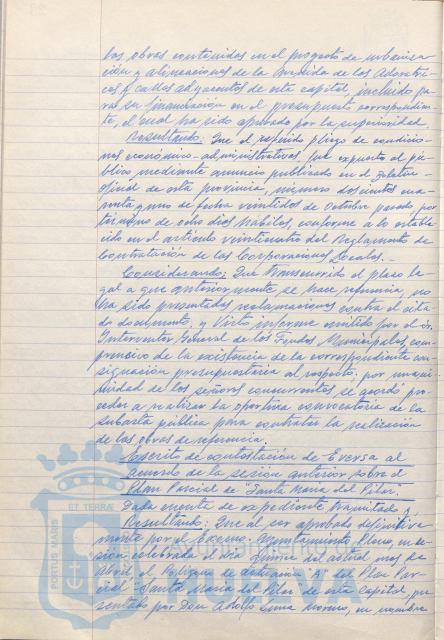 las obras contenidas en el proyecto de urbaniza-
ción y alineaciones de la Avenida de las Adoratri-
ces y calles adyacentes de esta capital, incluido pa-
ra su financiación en el presupuesto correspondien-
te, el cual ha sido aprobado por la superioridad.
Resultando: Que el referido pliego de condicio-
nes económico-administrativas, fue expuesto al pú-
blico, mediante anuncio publicado en el Boletín
oficial de esta provincia, número doscientos cua-
renta y uno de fecha veintidos de Octubre pasado, por
término de ocho días hábiles, conforme a lo estable-
cido en el artículo veinticuatro del Reglamento de
Contratación de las Corporaciones Locales.-
Considerando: Que transcurrido el plazo le-
gal a que anteriormente se hace referencia, no
ha sido presentadas reclamaciones contra el cita-
do documento, y visto informe emitido por el Sr.
Interventor General de los Fondos Municipales, com-
prensivo de la existencia de la correspondiente con-
signación presupuestaria al respecto; por unani-
midad de los señores concurrentes se acordó pro-
ceder a realizar la oportuna convocatoria de la
subasta pública para contratar la realización
de las obras de referencia.
Escrito de contestación de Eversa al
acuerdo de la sesión anterior sobre el
Plan Parcial de "Santa María del Pilar".
Dada cuenta de expediente tramitado y
Resultando: Que al ser aprobado definitiva-
mente por el Excmo. Ayuntamiento Pleno, en se-
sión celebrada el día del actual mes de
Abril, el Polígono de actuación "A" del Plan Par-
cial "Santa María del Pilar" de esta Capital, pre-
sentado por Don Adolfo Moreno, en nombre
ET TERRAE
PORTUS MARIS